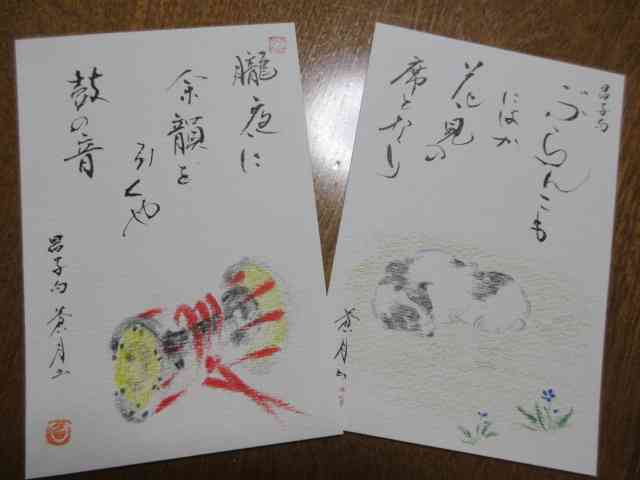 朧夜に
余韻を
引くや
鼓の音
昌子句 蒼月山
昌子句
ぶらんこも
にはか
花見の
席となり
蒼月山